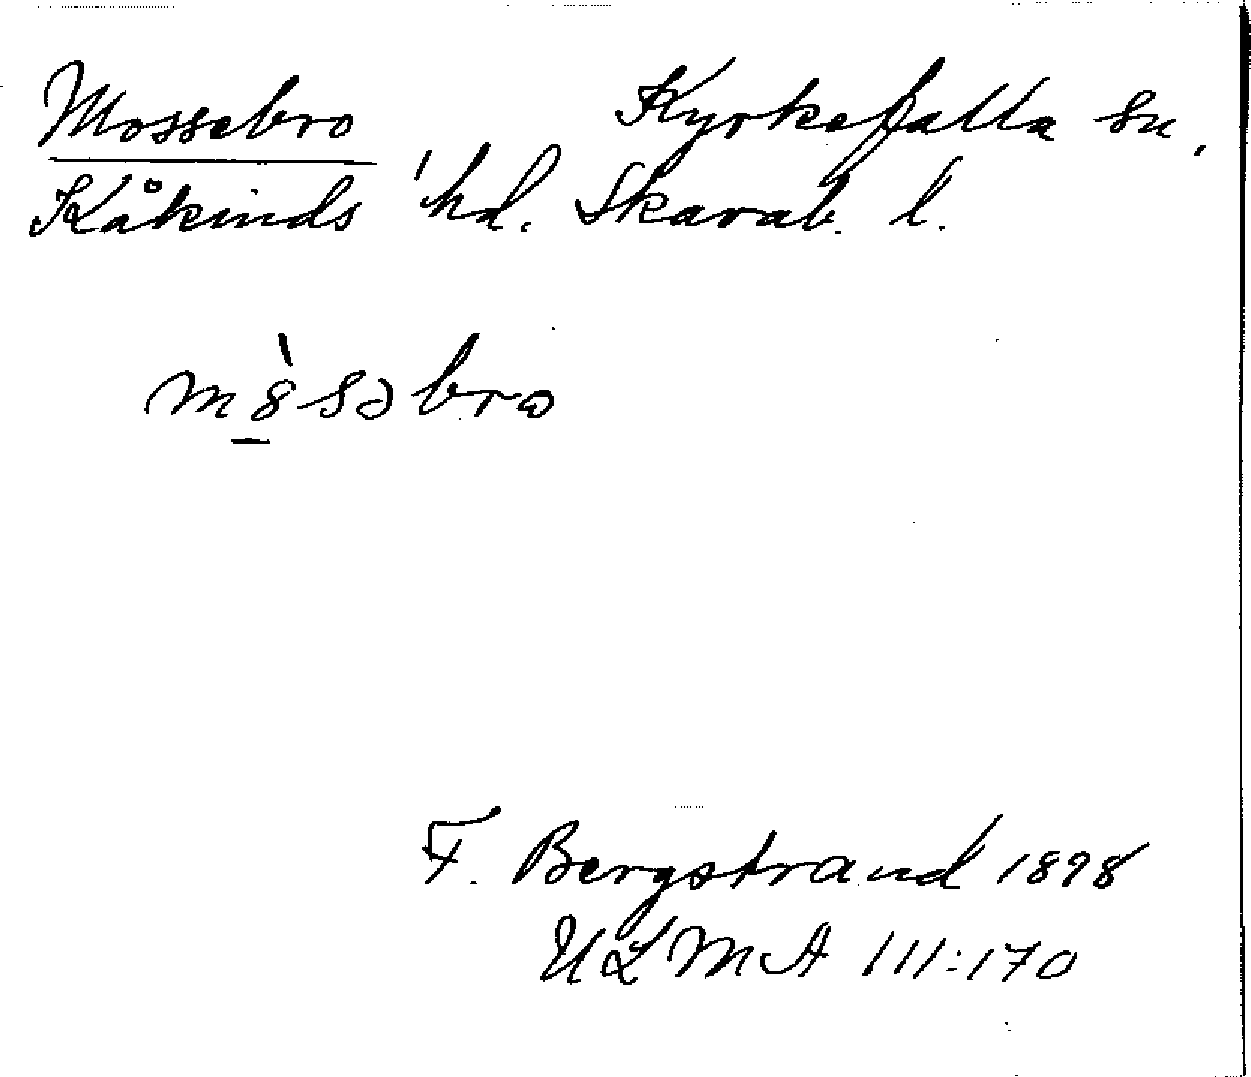 Mossebro Kyrkefalla sn,
Kåkinds hd. Skarab. l.
m8̀səbro
F. Bergstrand 1898
ULMA 111:170